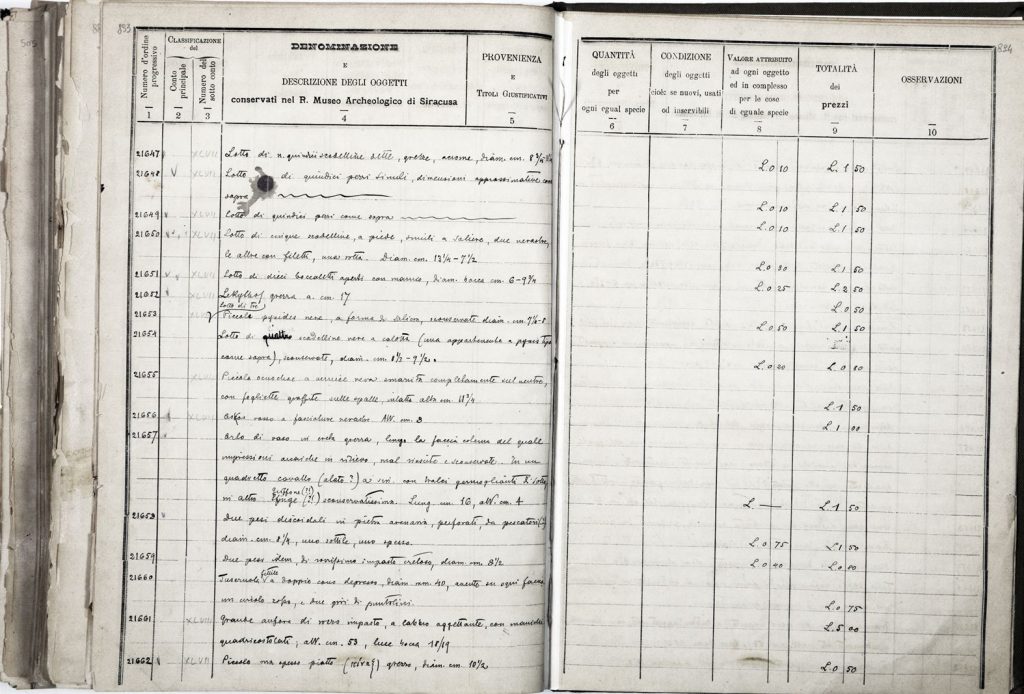 893
Numero d'ordine progressivo
CLASSIFICAZIONE
del
Conto principale
Numero del sotto conto
DENOMINAZIONE
E
DESCRIZIONE DEGLI OGGETTI
conservati nel R. Museo Archeologico di Siracusa
PROVENIENZA
E
TITOLI GIUSTIFICATIVI
1 2 3 4 5
21647 XLVII Lotto di n. quindici scodelline dette, grezze, acrome, diam. cm. 8
21648 V XLVII Lotto di quindici pezzi simili, dimensioni approssimative come
sopra
21649 XLVII Lotto di quindici pezzi come sopra
21650 XLVII Lotto di cinque scodelline, a piede, simili a saliere, due nerastre,
le altre con filetti, una rotta. Diam. cm. 13 1/4 - 7 1/2
21651 XLVII Lotto di dieci boccaletti aperti con manico, diam. bocca cm. 6 - 9 3/4
21652 XLVII Lekythos grezza a. cm. 17
Lotto di tre
21653 Piccole pyxides nere, a forma di saliera, sconservate diam. cm. 7 1/2 - 8
21654 Lotto di quattro scodelline nere a calotta (una appartenente a
come sopra), sconservate, diam. cm. 8 1/2 - 9 1/2.
21655 XLVII Piccola oenochoe a vernice nera smarrita completamente sul ventre,
con fogliette graffite sulle spalle, alta cm. 11 3/4
21656 XLVII Askos vaso a fasciature nerastre Alt. cm. 8
21657 Orlo di vaso in creta grezza, lungo la faccia esterna del quale
impressioni arcaiche in rilievo, mal riuscite e sconservate. In un
quadretto cavallo (alato?) a sin. con tralci germoglianti di sotto,
griffone (?)
in altro sfinge (?) sconservatissima. Lung. cm. 16, alt. cm. 4
21658 Due pesi discoidali in pietra arenaria, perforati, da pescatori
diam. cm. 8 1/4, uno sottile, uno spesso.
21659 Due pesi idem, di rossissimo impasto cretoso, diam. cm. 8 1/2
fittile
21660 Fusernola a doppio cono depresso, diam. mm. 40, avente su ogni faccia
un circolo rosso, e due giri di puntolini.
21661 XLVII Grande anfora di rozzo impasto, a labbro aggettante, con maniche
quadricostolate, alt. cm. 53, luce bocca 18/19
21662 XLVII Piccolo ma spesso piatto grezzo, diam. cm. 10 1/2
894
QUANTITÀ
degli oggetti
per
ogni egual specie
CONDIZIONE
degli oggetti
cioè: se nuovi, usati
od inservibili
VALORE ATTRIBUITO
ad ogni oggetto
ed in complesso
per le cose
di eguale specie
TOTALITÀ
dei
prezzi
OSSERVAZIONI
6 7 8 9 10
L. 0 10 L. 1 50
L. 0 10 L. 1 50
L. 0 10 L. 1 50
L. 0 30 L. 1 50
L. 0 25 L. 2 50
L. 0 50
L. 0 50 L. 1 50
L. 0 20 L. 0 80
L. 1 50
L. 1 00
L. — L. 1 50
L. 0 75 L. 1 50
L. 0 40 L. 0 80
L. 0 75
L. 5 00
L. 0 50